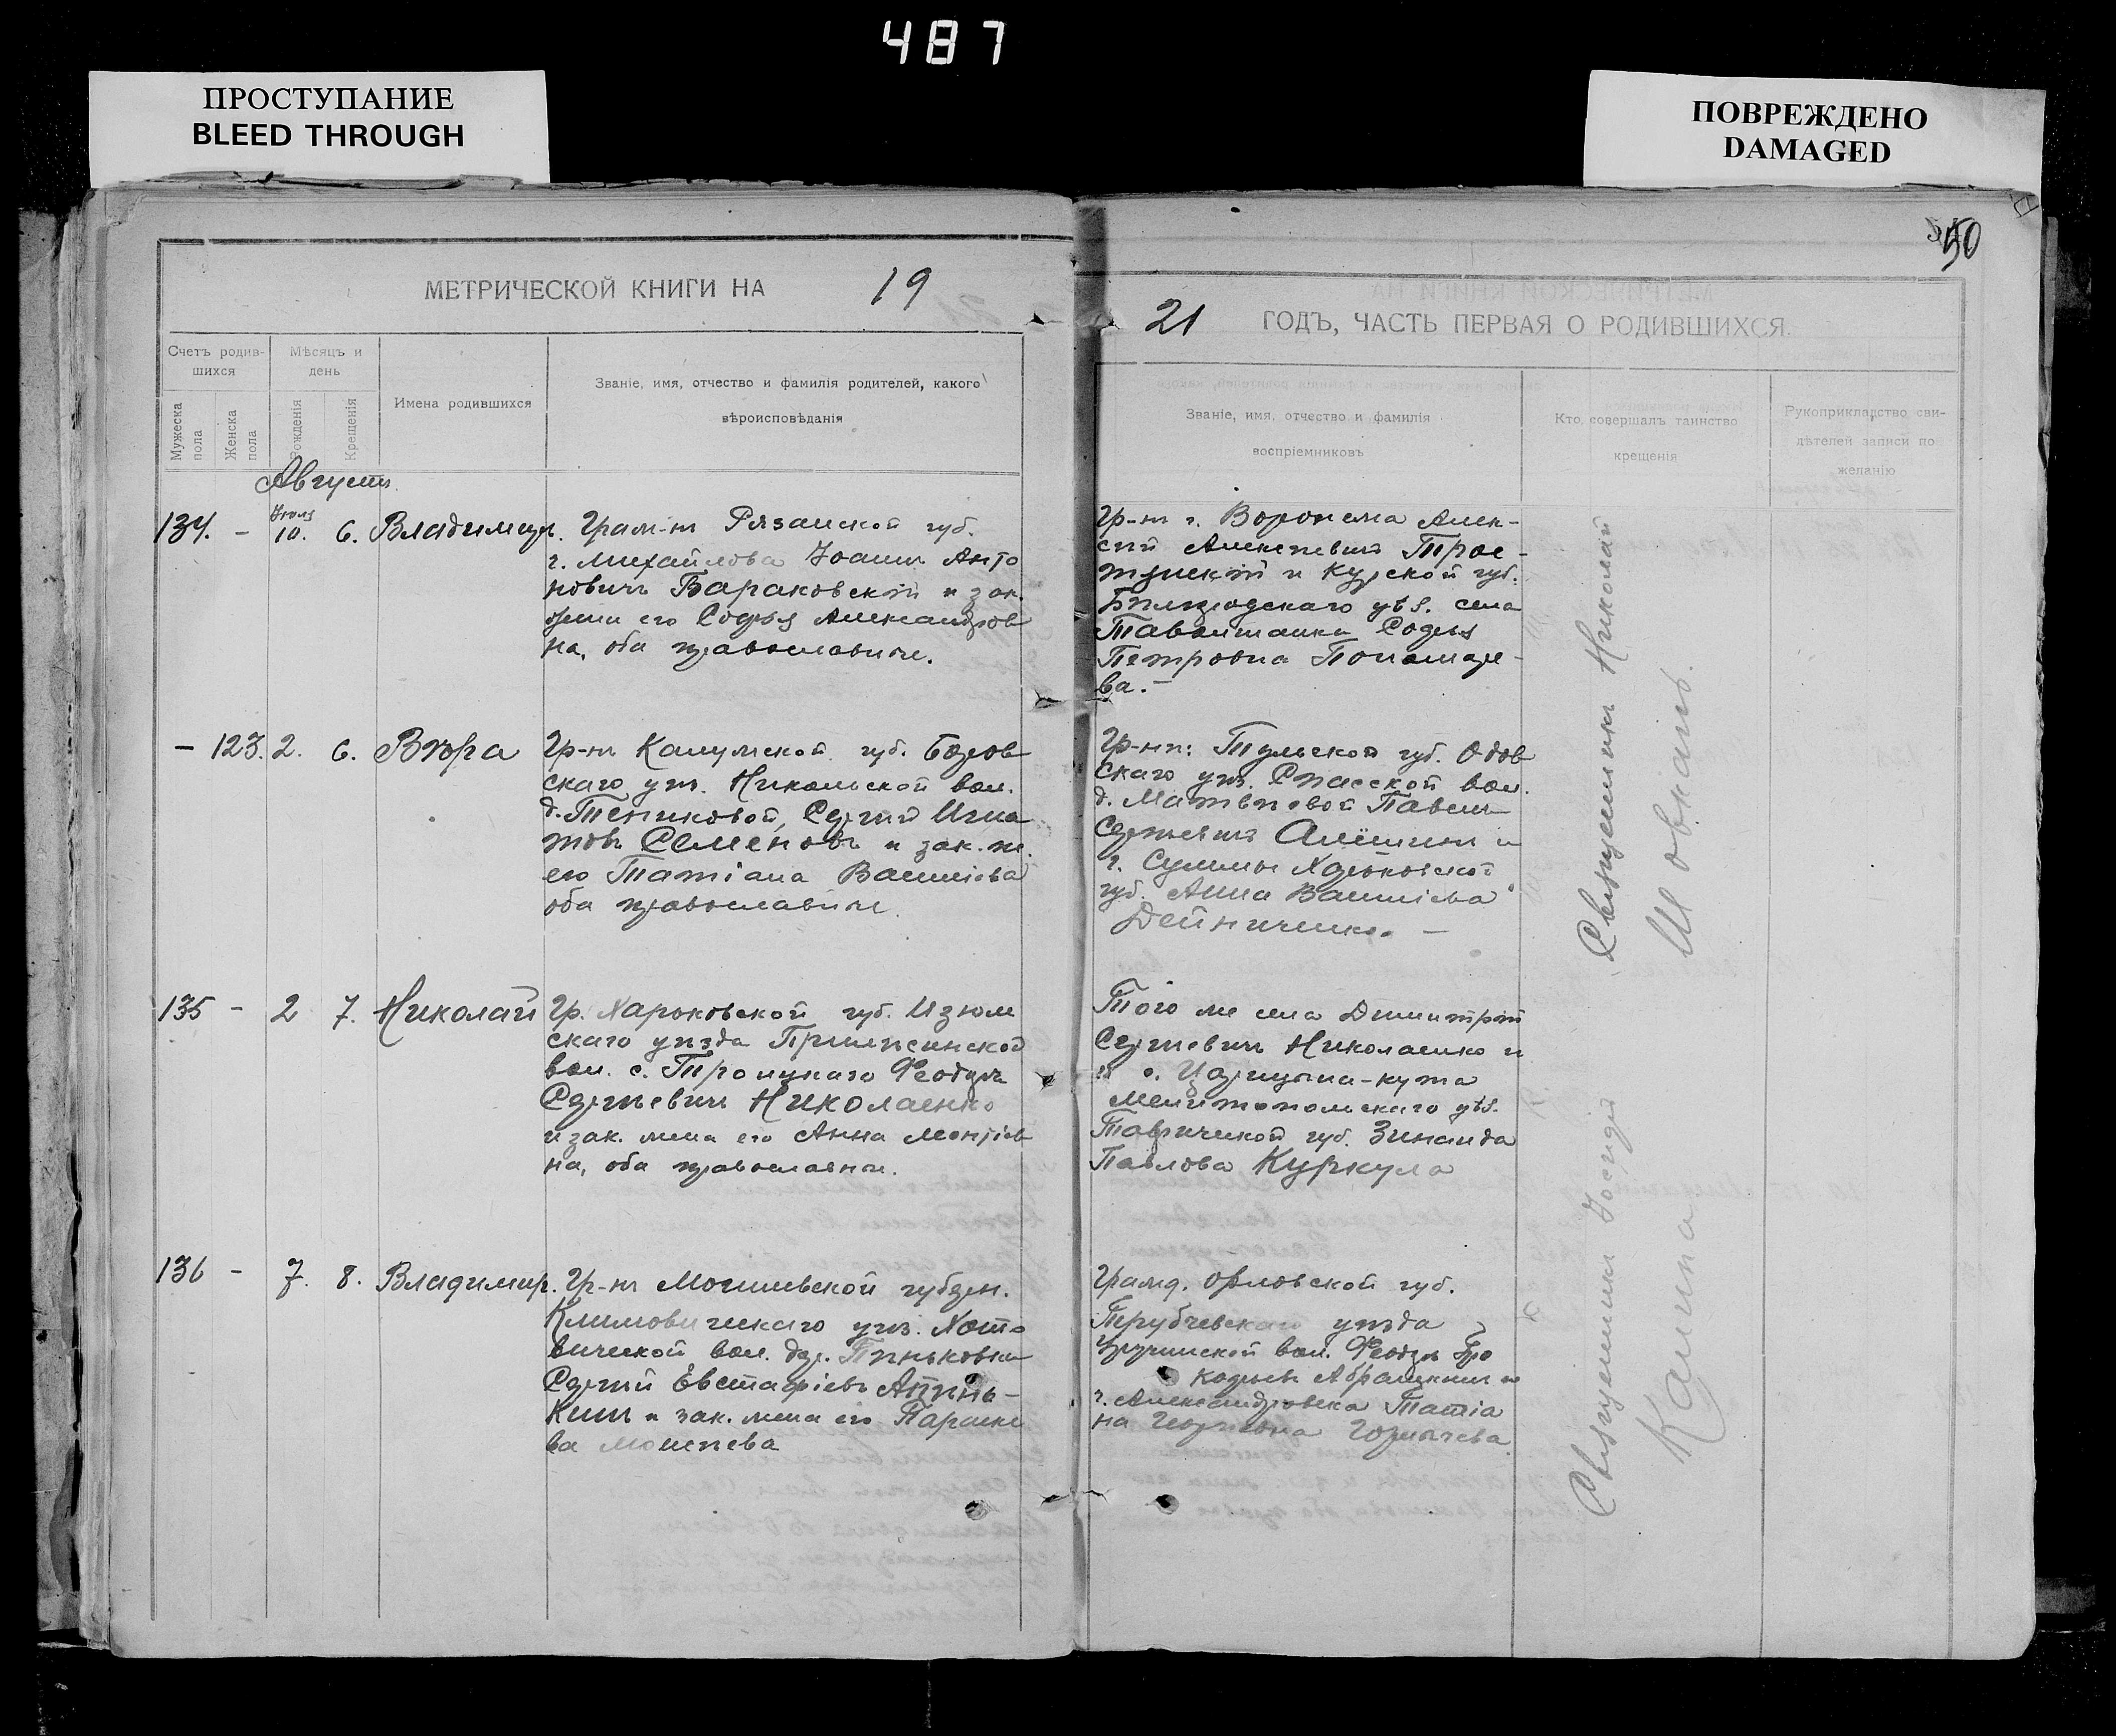 487
ПРОСТУПАНИЕ
BLEED THROUGH
ПОВРЕЖДЕНО
DAMAGED
50
МЕТРИЧЕСКОЙ КНИГИ НА 19
21 ГОДЪ, ЧАСТЬ ПЕРВАЯ О РОДИВШИХСЯ.
Счетъ родив-
шихся
Мужеска пола
Женска пола
Мѣсяцъ и
день
Рожденія
Крещенія
Имена родившихся
Званіе, имя, отчество и фамилія родителей, какого
вѣроисповѣданія
Званіе, имя, отчество и фамилія
воспріемниковъ
Кто совершалъ таинство
крещенія
Рукоприкладство сви-
дѣтелей записи по
желанію
Августъ
134. - Іюля 10. 6. Владимиръ.
Гражд-нъ Рязанской губ.
г. Михайлова Іоаннъ Анто
новичъ Бараковскій и зак.
жена его Софья Александров
на, оба православные.
Гр-нъ г. Воронежа Алек-
сѣй Алексѣевичъ Трое-
и Курской губ.
Бѣлгородскаго уѣз. села
Таволжанки Софья
Петровна Пономаре-
ва. -
- 123. 2. 6. Вѣра
Гр-нъ Калужской губ. Боров
скаго уѣз. Никольской вол.
д. Тениковой, Сергій Игна
товъ Семеновъ и зак. ж.
его Татіана Васильева
оба православные.
Гр-не: Тульской губ. Одоев
скаго уѣз. Спасской вол.
д. Матвѣевой Павелъ
Сергѣевичъ Алёшинъ и
г. Суммы Харьковской
губ. Анна Васильева
Дейниченко. -
135 - 2 7. Николай
Гр. Харьковской губ. Изюм
скаго уѣзда
вол. с. Троицкаго Феодоръ
Сергѣевичъ Николаенко
и зак. жена его Анна Леонтіев
на, оба православные.
Того же села Димитрій
Сергѣевичъ Николаенко и
с. Царицына-кута
Мелитопольскаго уѣз.
Таврической губ. Зинаида
Павлова Куркула
136 - 7. 8. Владимиръ.
Гр-нъ Могилевской губерн.
Климовическаго уѣз. Хото
вичской вол. дер. Пеньковки
Сергій Евстафіевъ
и зак. жена его Параске
ва Моисеева
Гражд. Орловской губ.
Трубчевскаго уѣзда
вол. Феодоръ Про
кофьевъ и
г. Александровска Татіа
на Георгіевна
Священникъ Николай
Шовкань.
Священникъ Іосифъ
Калина